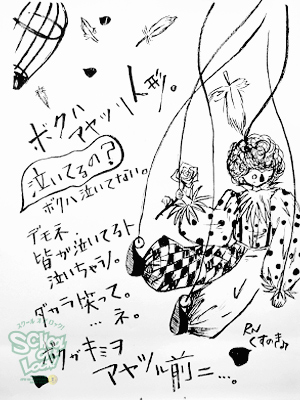 ボクハ
アヤツリ人形。
泣いてるの?
ボクハ泣いてない。
デモネ、
皆が泣いてるト
泣いちゃう。
ダカラ笑って。
…ネ。
ボクガキミヲ
アヤツル前ニ…。
RN
くすのき
スクール オブ ロック!
SCHOOL OF LOCK!